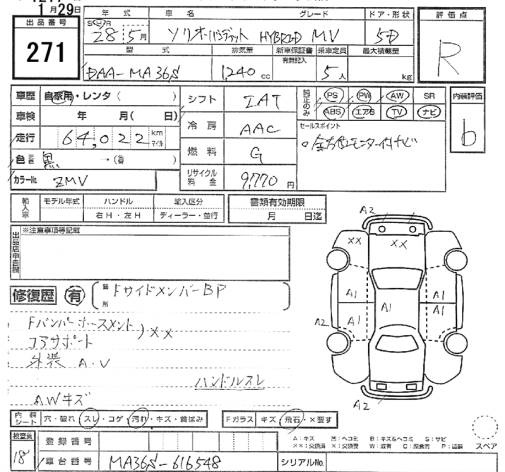 月29日
出品番号
271
年式 車名 グレード ドア・形状
28年5月 ソリオバンディット HYBRID MV 5D
型式 排気量 新車保証書 乗車定員 最大積載量
有無記入
DAA-MA36S 1,240cc 5人 kg
評価点
R
車歴 自家用・レンタ( )
車検 年 月( 日)
走行 64,022 km マイル
色 黒 →( 色)
カラーNo ZMV
シフト IAT
冷房 AAC
燃料 G
リサイクル料金 9,770円
PS PW AW SR
ABS エアB TV ナビ
セールスポイント
○全方位モニター付ナビ
内装評価
b
輸入車 モデル年式 ハンドル 右H・左H 輸入区分 ディーラー・並行
書類有効期限
月 日迄
※注意事項等記載
修復歴 有 箇所 FサイドメンバーBP
Fバンパーホースメント
コアサポート )××
外装 A・U
ハンドルスレ
AWキズ
A2
×× ××
A1 A1 A1
A2 A1 A1
A2
内装シート 穴・破れ スレ・コゲ 汚れ・キズ・歯ほみ Fガラス キズ 飛石・×要す
検査員
18
登録番号
車台番号 MA36S-616548 シリアルNo.
A:キズ U:ヘコミ B:キズ&ヘコミ S:サビ
スペア